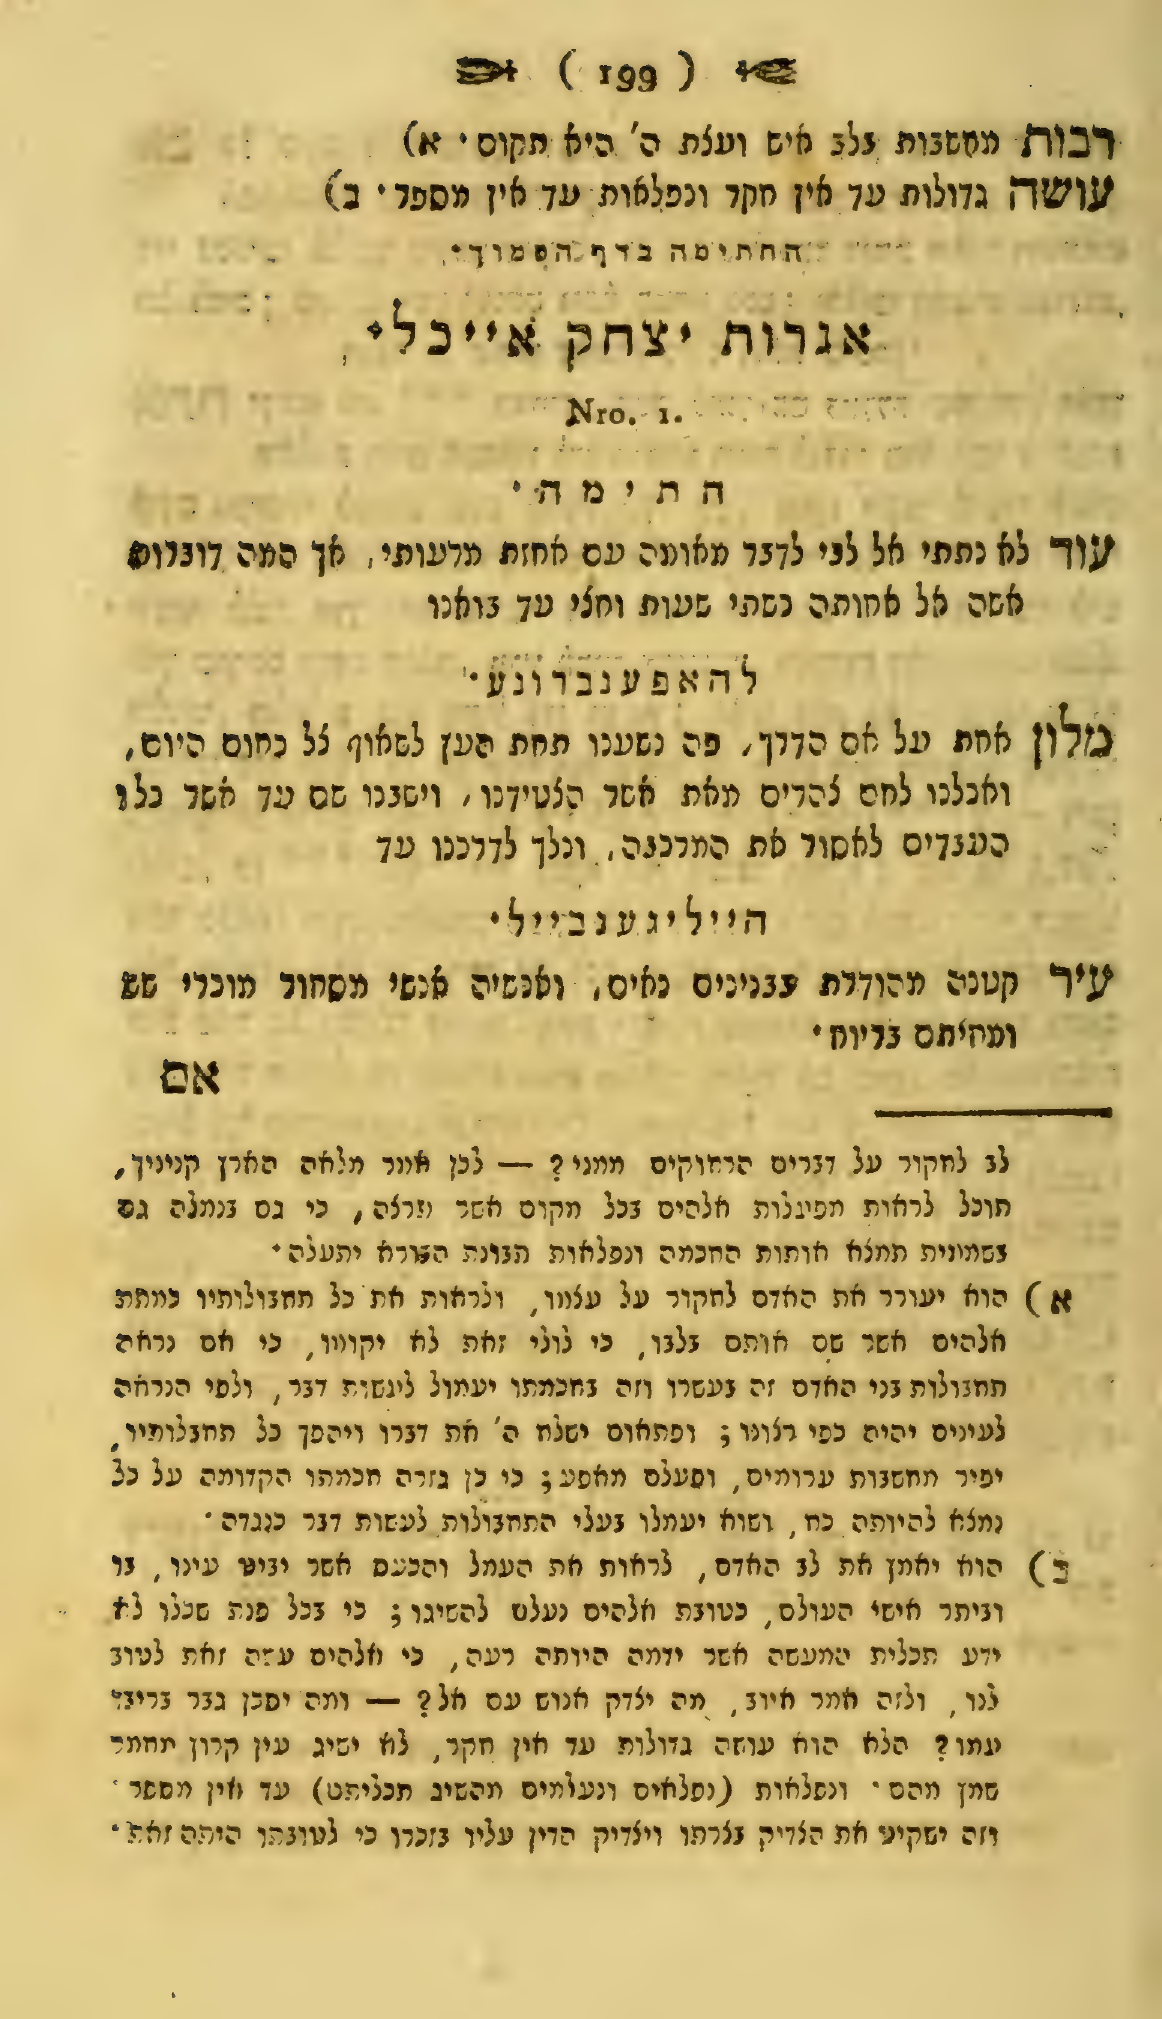 ( 199 )
רבות מחשבות בלב איש ועצת ה' היא תקום · א)
עושה גדולות עד אין חקר ונפלאות עד אין מספר · ב)
החתימה בדף הסמוך ·
אגרות יצחק אייכל ·
Nro. 1.
חתימה ·
עוד לא נתתי אל לבי לדבר מאומה עם אחת מרעותי, אך המה דוברות
אשה אל אחותה כשתי שעות וחצי עד בואנו
להאפענברונע ·
מלון אחת על אם הדרך, פה נשענו תחת העץ לשאוף צל כחום היום,
ואכלנו לחם צהרים מאת אשר הצטידנו, וישבנו שם עד אשר כלו
העבדים לאסור את המרכבה, ונלך לדרכנו עד
הייליגענבייל ·
עיר קטנה מהודרת בבנינים נאים, ואנשיה אנשי מסחור מוכרי שש
ומחיתם בריוח ·
אם
לב לחקור על דברים הרחוקים ממני? — לכן אמר מלאה הארץ קניניך,
תוכל לראות מפעלות אלהים בכל מקום אשר תרצה, כי גם בנמלה גם
בשממית תמצא אותות החכמה ונפלאות תבונת הבורא יתעלה ·
א) הוא יעורר את האדם לחקור על עצמו, ולראות את כל תחבולותיו כמתת
אלהים אשר שם אותם בלבו, כי לולי זאת לא יקומו, כי אם נראה
תחבולות בני האדם זה בעשרו וזה בחכמתו יעמול לעשות דבר, ולפי הנראה
לעינים יהיה כפי רצונו; ופתאום ישלח ה' את דברו ויהפך כל תחבלותיו,
יפיר מחשבות ערומים, ופעלם מאפע; כי כן גזרה חכמתו הקדומה על כל
נמצא להיותה כח, ושוא יעמלו בעלי התחבולות לעשות דבר כנגדה ·
ב) הוא יאמן את לב האדם, לראות את העמל והכעס אשר יביט עינו, בו
וביתר אישי העולם, כטובת אלהים נעלט להשיגו; כי בכל פנת שכלו לא
ידע תכלית המעשה אשר ידמה היותה רעה, כי אלהים עשה זאת לטוב
לנו, ולזה אמר איוב, מה יצדק אנוש עם אל? — ומה יסכן גבר בריבו
עמו? הלא הוא עושה גדולות עד אין חקר, לא ישיג עין קרוץ מחמר
שמץ מהם · ונפלאות (נפלאים ונעלמים מהשיג תכליתם) עד אין מספר ·
וזה ישקיט את הצדיק בצרתו ויצדיק הדין עליו בזכרו כי לטובתו היתה זאת ·